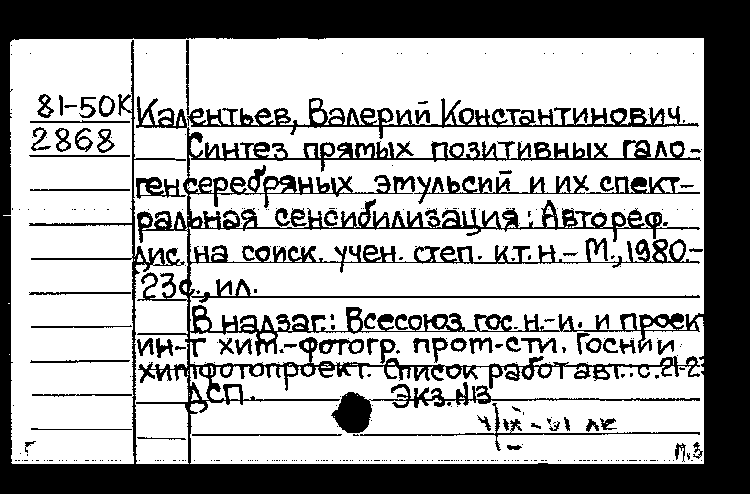 81-50К Калентьев, Валерий Константинович.
2868 Синтез прямых позитивных гало-
генсеребряных эмульсий и их спект-
ральная сенсибилизация: Автореф.
дис. на соиск. учен. степ. к.т.н. - М., 1980.-
23с., ил.
В надзаг.: Всесоюз. гос. н.-и. и проек
ин-т хим.-фотогр. пром-сти. Госнии
химфотопроект. Список работ авт.: с.21-23
ДСП. Экз. №13
Г